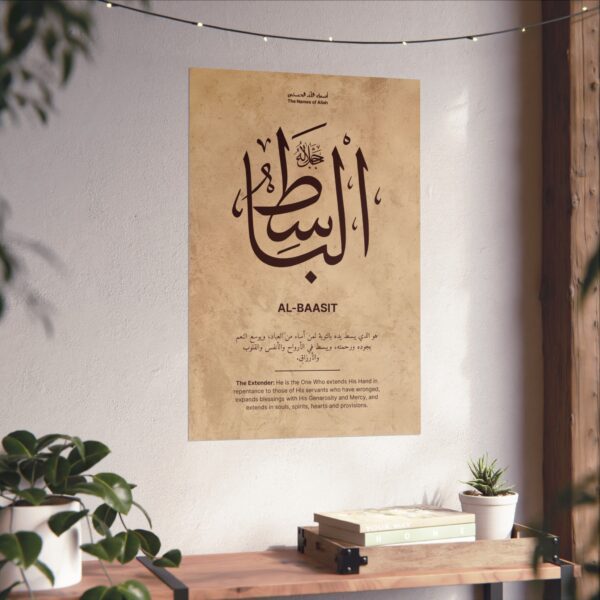 أسماء الله الحسنى
The Names of Allah
جل جلاله
الباسط
AL-BAASIT
هو الذي يبسط يده بالتوبة لمن أساء من العباد، ويوسع النعم
بجوده ورحمته، ويبسط في الأرواح والأنفس والقلوب
والأرزاق.
The Extender: He is the One Who extends His Hand in,
repentance to those of His servants who have wronged,
expands blessings with His Generosity and Mercy, and
extends in souls, spirits, hearts and provisions.